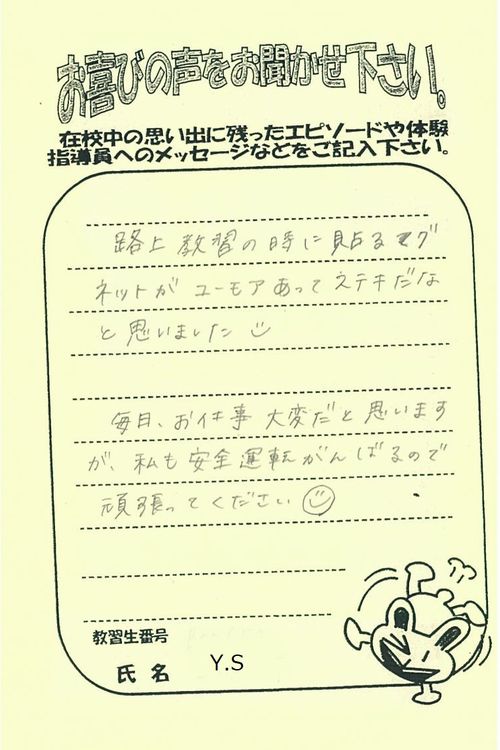 お喜びの声をお聞かせ下さい。
在校中の思い出に残ったエピソードや体験
指導員へのメッセージなどをご記入下さい。
路上教習の時に貼るマグ
ネットがユーモアあってステキだな
と思いました
毎日、お仕事大変だと思います
が、私も安全運転がんばるので
頑張ってください
教習生番号
氏名 Y.S